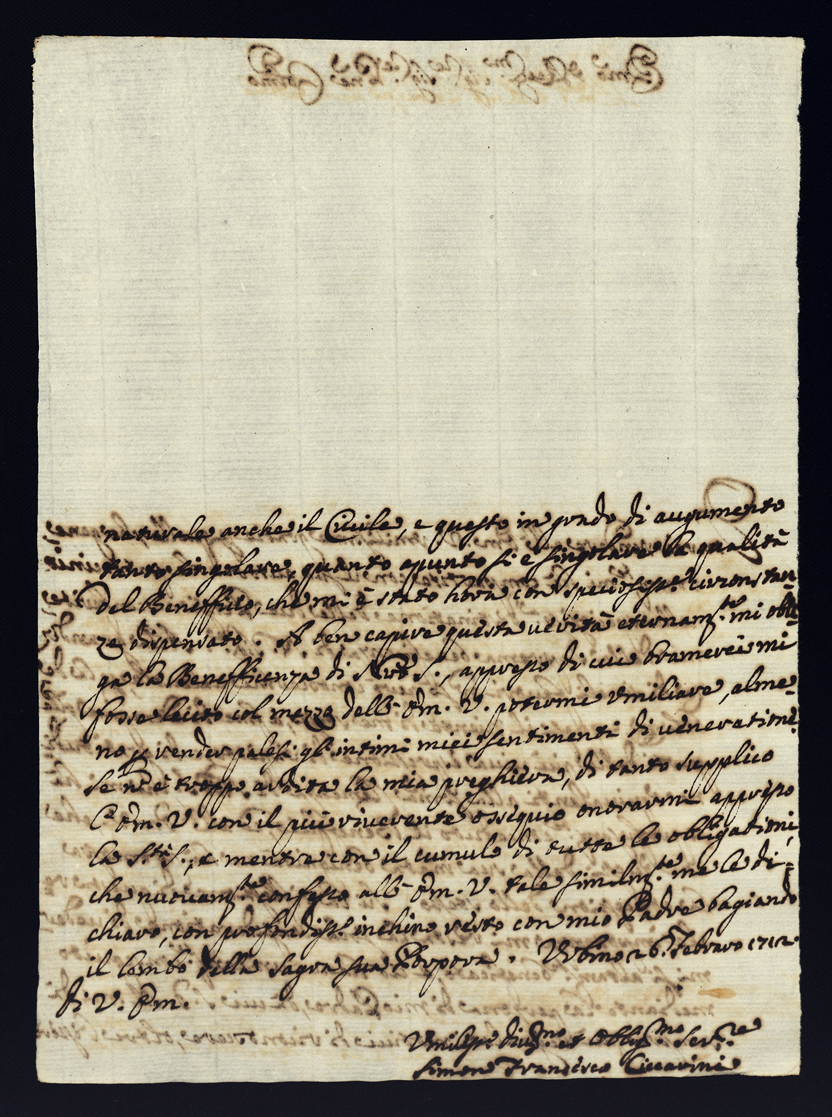 naturale anche il Civile, e questo in grado di augumento
tanto singolare, quanto apunto si è singolare la qualità
del Benefficio, che mi è stato hora con speciosiss.e circonstan-
ze dispensato. A ben capire questa verità eternam.te mi obli-
ga la Benefficenza di S., appresso di cui bramerei mi
fosse lecito col mezzo dell' Em. V. potermi umiliare, alme-
no p render palesi gl'intimi miei sentimenti di veneratione.
Se nō è troppo ardita la mia preghiera, di tanto supplico
l'Em. V. con il più riverente ossequio onorarmi appresso
la S.tà S., e mentre con il cumulo di tutte le obligationi,
che nuovam.te confesso all' Em. V. tale similm.te me le di-
chiaro, con profondiss.o inchino resto con mio Padre bagiando
il lembo della sagra sua Porpora. Urbino 26 Febraro 1712
di V. Em.
Umiliss.o div.mo et oblig.mo ser.re
Simon Francesco Ciccarini